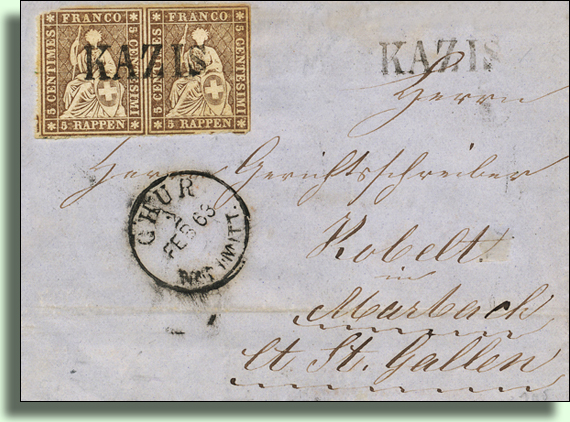 FRANCO FRANCO
5 CENTIMES 5 CENTESIMI 5 CENTIMES 5 CENTESIMI
5 RAPPEN 5 RAPPEN
KAZIS
KAZIS
Herrn
Herr Gerichtsschreiber
Kobelt
in
Marbach
Ct St. Gallen
CHUR
FEB 63
NACHMITT.